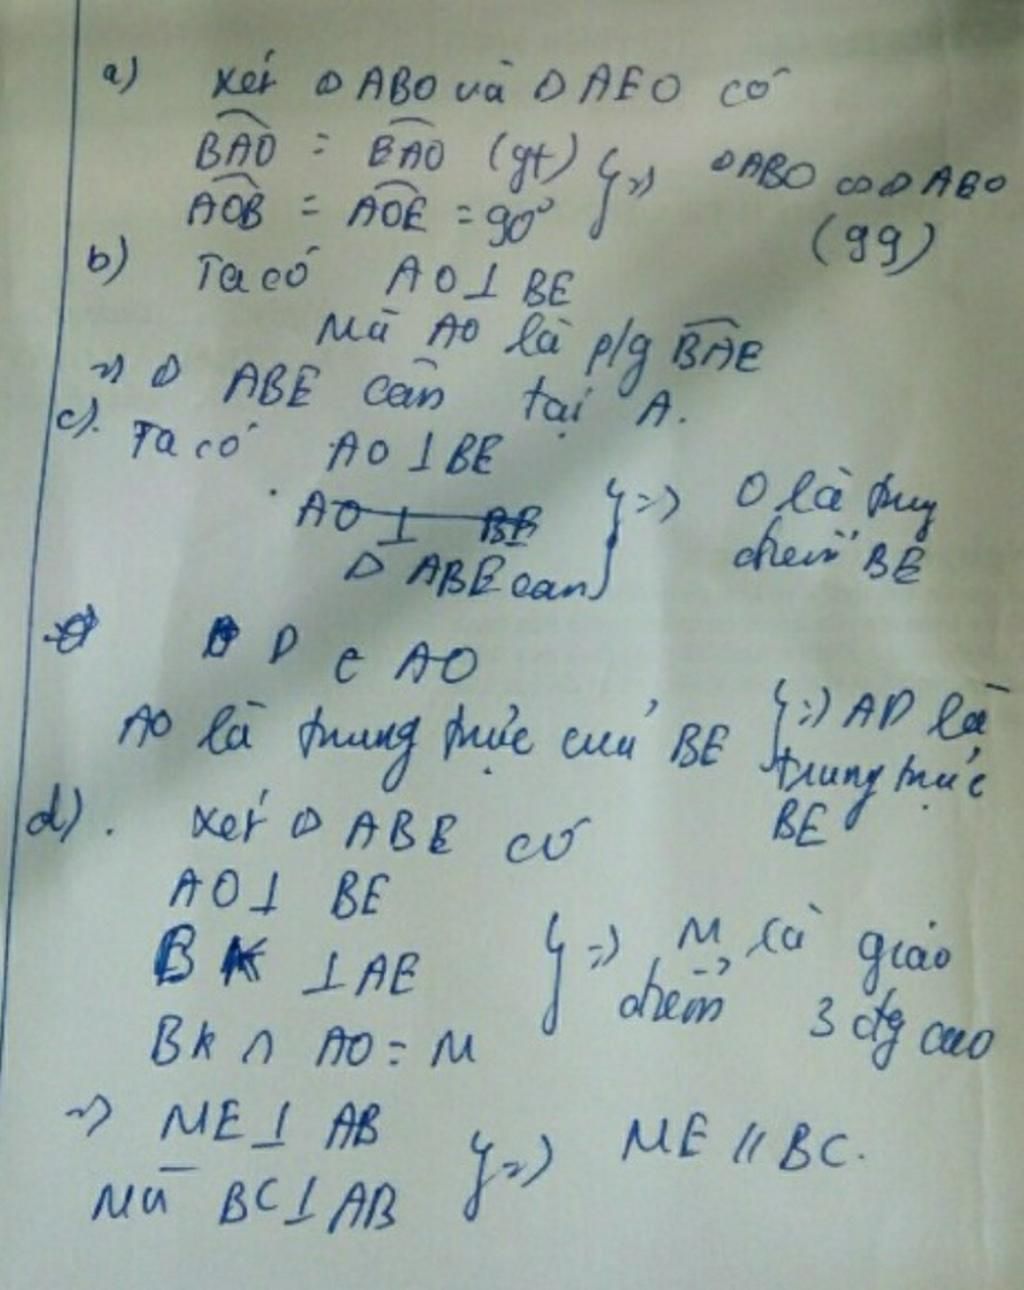 a) Xét Δ ABO và Δ AEO có
BAO = EAO (gt) } => Δ ABO ∽ Δ AEO
AOB = AOE = 90° (gg)
b) Ta có AO ⊥ BE
Mà AO là p/g BAE
=> Δ ABE cân tại A.
c). Ta có AO ⊥ BE
AO ⊥ BE
Δ ABE cân } => O là trung điểm BE
D ∈ AO
AO là trung trực của BE } => AD là trung trực BE
d). Xét Δ ABE có
AO ⊥ BE
BK ⊥ AE } => M là giao điểm 3 đg cao
BK ∩ AO = M
=> ME ⊥ AB
Mà BC ⊥ AB } => ME // BC.